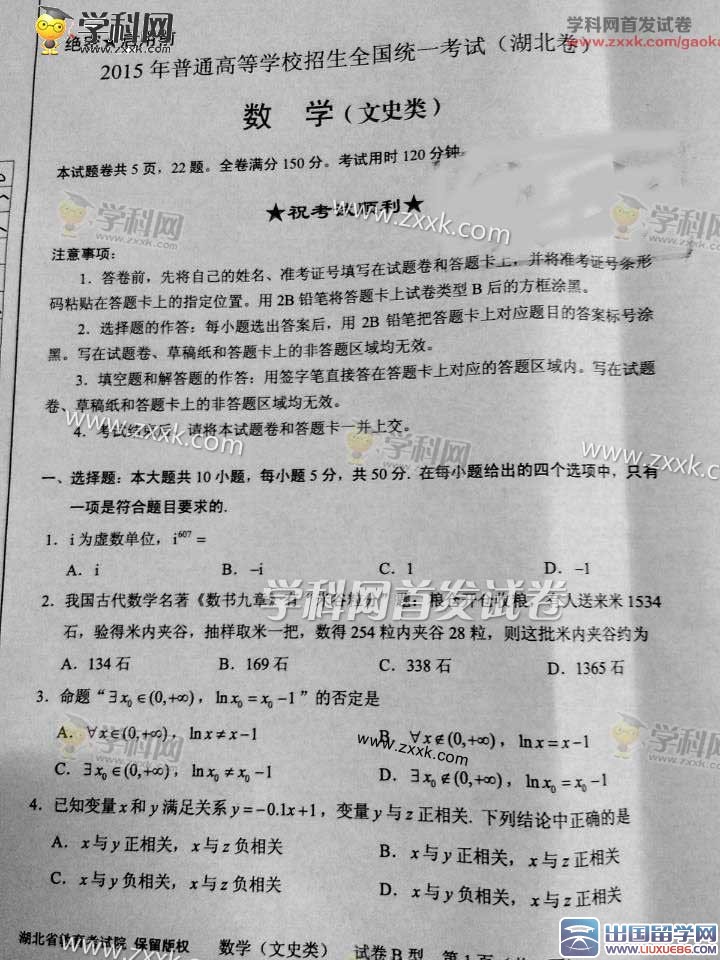 学科网首发试卷
www.zxxk.com/gaoka
学科网
2015 年普通高等学校招生全国统一考试（湖北卷）
数 学（文史类）
本试题卷共 5 页，22 题。全卷满分 150 分。考试用时 120 分钟
★祝考试顺利★
学科网
www.zxxk.com
学科网
注意事项：
1．答卷前，先将自己的姓名、准考证号填写在试题卷和答题卡上，并将准考证号条形
码粘贴在答题卡上的指定位置。用 2B 铅笔将答题卡上试卷类型 B 后的方框涂黑。
2．选择题的作答：每小题选出答案后，用 2B 铅笔把答题卡上对应题目的答案标号涂
黑。写在试题卷、草稿纸和答题卡上的非答题区域均无效。
3．填空题和解答题的作答：用签字笔直接答在答题卡上对应的答题区域内。写在试题
卷、草稿纸和答题卡上的非答题区域均无效。
4．考试结束后，请将本试题卷和答题卡一并上交。
www.zxxk.com
学科网
www.zxxk.com
一、选择题：本大题共 10 小题，每小题 5 分，共 50 分．在每小题给出的四个选项中，只有
一项是符合题目要求的．
1．i 为虚数单位，i⁶⁰⁷ =
A．i B．-i C．1 D．-1
学科网首发试卷
2．我国古代数学名著《数书九章》有 题：粮 开仓收粮， 人送来米 1534
石，验得米内夹谷，抽样取米一把，数得 254 粒内夹谷 28 粒，则这批米内夹谷约为
A．134 石 B．169 石 C．338 石 D．1365 石
3．命题“∃x₀∈(0,+∞)，lnx₀ = x₀ -1”的否定是
A．∀x∈(0,+∞)，lnx ≠ x-1 B．∀x∉(0,+∞)，lnx = x-1
C．∃x₀∈(0,+∞)，lnx₀ ≠ x₀ -1 D．∃x₀∉(0,+∞)，lnx₀ = x₀ -1
学科网
www.zxxk.com
学科网
4．已知变量 x 和 y 满足关系 y = -0.1x+1，变量 y 与 z 正相关．下列结论中正确的是
A．x 与 y 正相关，x 与 z 负相关 B．x 与 y 正相关，x 与 z 正相关
C．x 与 y 负相关，x 与 z 负相关 D．x 与 y 负相关，x 与 z 正相关
湖北省教育考试院 保留版权 数学（文史类） 试卷 B 型 第 1 页
出国留学网
WWW.LIUXUE86.COM